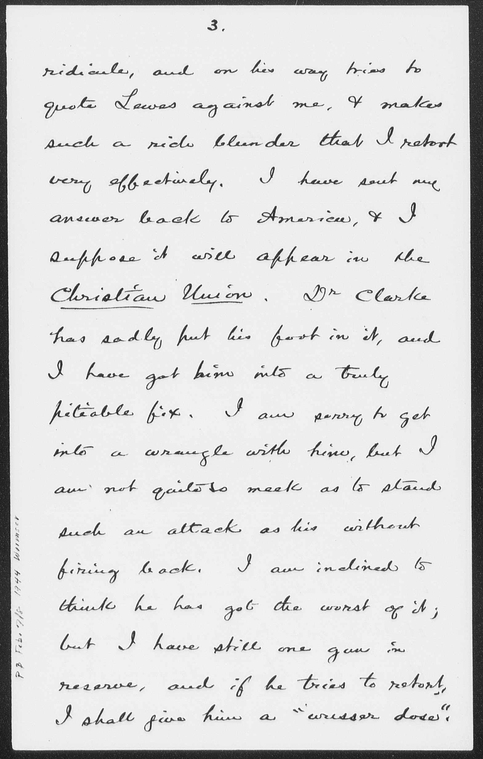 3.
ridicule, and on his way tries to
quote Lewes against me, & makes
such a rich blunder that I retort
very effectively. I have sent my
answer back to America, & I
suppose it will appear in the
Christian Union. Dr Clarke
has sadly put his foot in it, and
I have got him into a truly
pitiable fix. I am sorry to get
into a wrangle with him, but I
am not quite so meek as to stand
such an attack as his without
firing back. I am inclined to
think he has got the worst of it;
but I have still one gun in
reserve, and if he tries to retort,
I shall give him a "wusser dose".
PB Feb.